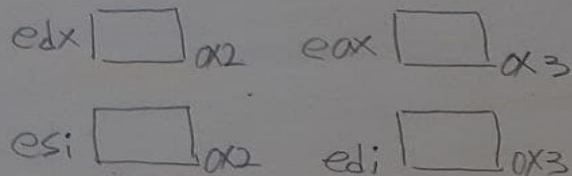 edx 0x2 eax 0x3
esi 0x2 edi 0x3